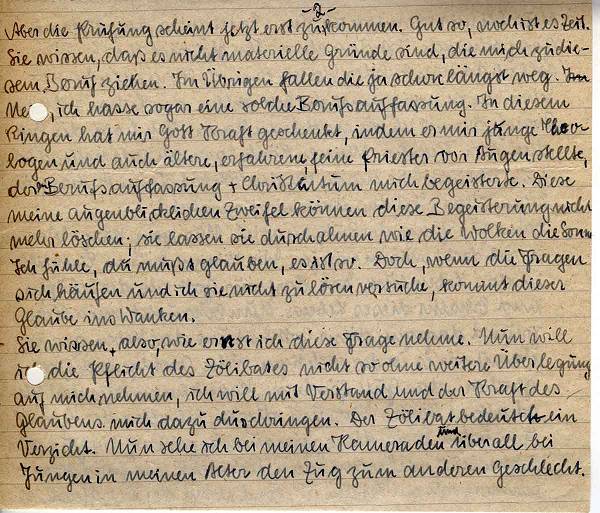 -2-
Aber die Prüfung scheint jetzt erst zu kommen. Gut so, noch ist es Zeit.
Sie wissen, daß es nicht materielle Gründe sind, die mich zu die-
sem Beruf ziehen. Im Übrigen fallen die ja schon längst weg.
ich hasse sogar eine solche Berufsauffassung. In diesem
Ringen hat mir Gott Kraft geschenkt, indem er mir junge Theo-
logen und auch ältere, erfahrene, feine Priester vor Augen stellte,
deren Berufsauffassung + Christentum mich begeisterte. Diese
meine augenblicklichen Zweifel können diese Begeisterung nicht
mehr löschen; sie lassen sie durchahnen wie die Wolken die Sonne
Ich fühle, du mußt glauben, es ist so. Doch, wenn die Fragen
sich häufen und ich sie nicht zu lösen versuche, kommt dieser
Glaube ins Wanken.
Sie wissen also, wie ernst ich diese Frage nehme. Nun will
ich die Pflicht des Zölibates nicht so ohne weitere Überlegung
auf mich nehmen, ich will mit Verstand und der Kraft des
Glaubens mich dazu durchringen. Der Zölibat bedeutet ein
Verzicht. Nun sehe ich bei meinen Kameraden und überall bei
Jungen in meinen Alter den Zug zum anderen Geschlecht.